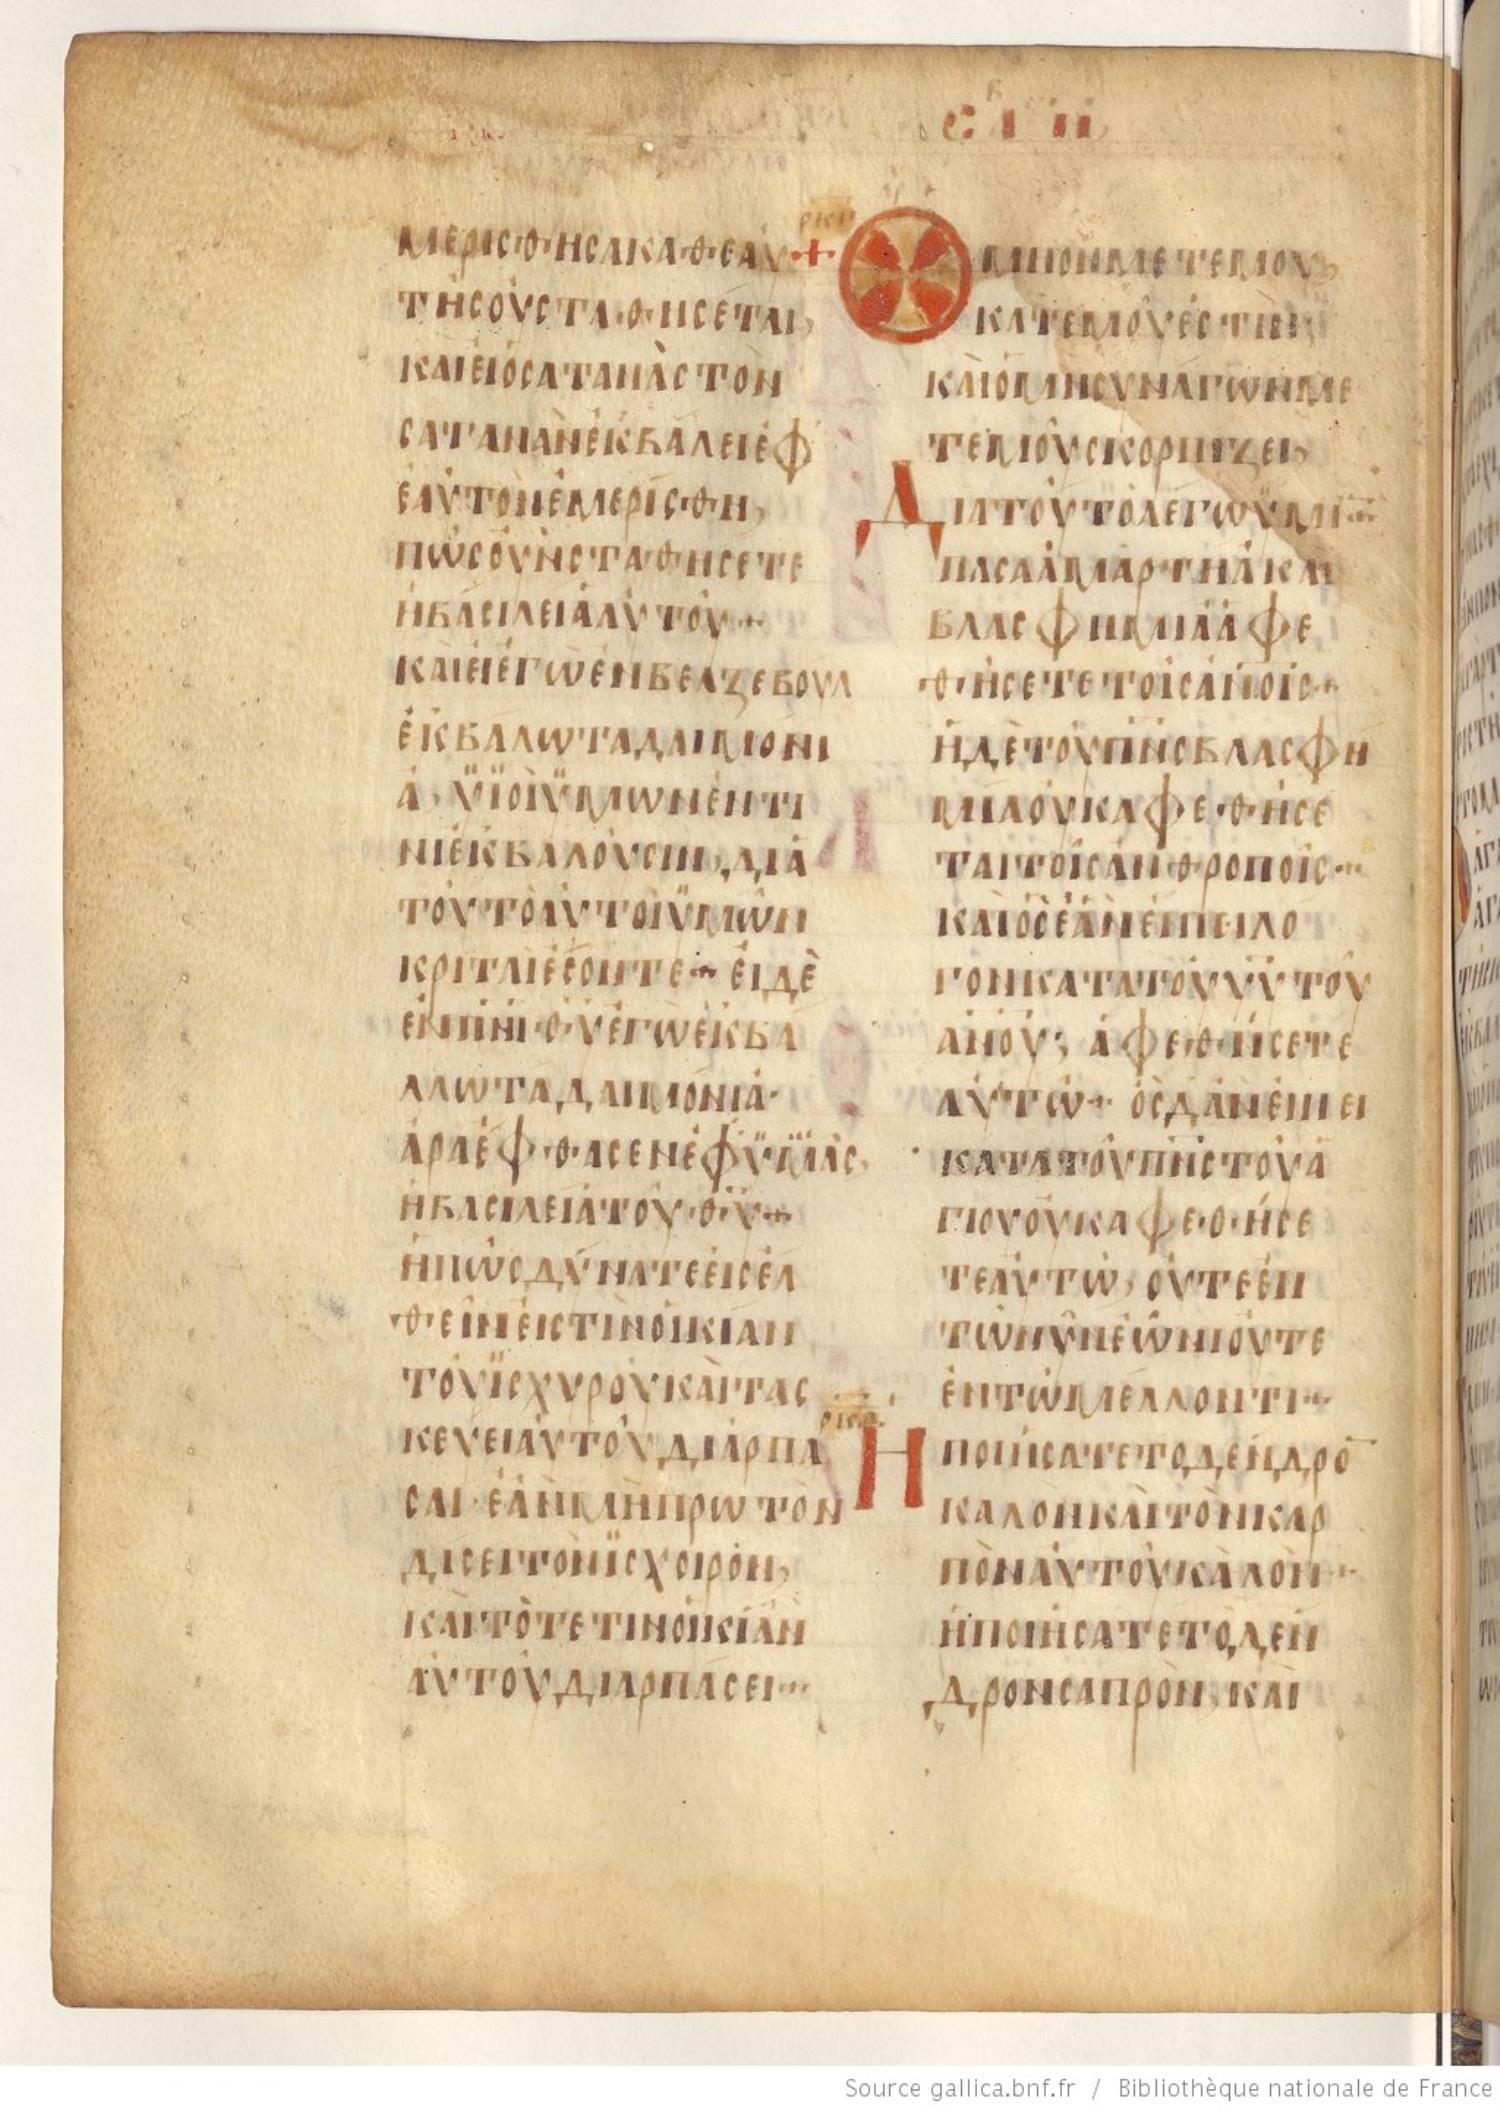 ΜΕΡΙCΘΗCΑΚΑΘΕΑΥ
ΤΗCΟΥCΤΑΘΗCΕΤΑΙ,
ΚΑΙΕΙΟCΑΤΑΝΑCΤΟΝ
CΑΤΑΝΑΝΕΚΒΑΛΕΙΕΦ
ΕΑΥΤΟΝΕΜΕΡΙCΘΗ,
ΠΩCΟΥΝCΤΑΘΗCΕΤΕ
ΗΒΑCΙΛΕΙΑΑΥΤΟΥ
ΚΑΙΕΙΕΓΩΕΝΒΕΛΖΕΒΟΥΛ
ΕΚΒΑΛΩΤΑΔΑΙΜΟΝΙ
Α, ΫΪΟΙΫΜΩΝΕΝΤΙ
ΝΙΕΚΒΑΛΟΥCΙΝ,ΔΙΑ
ΤΟΥΤΟΑΥΤΟΙΫΜΩΝ
ΚΡΙΤΑΙΕCΟΝΤΕ ΕΙΔΕ
ΕΝΠΝΙΘΥΕΓΩΕΚΒΑ
ΛΛΩΤΑΔΑΙΜΟΝΙΑ·
ΑΡΑΕΦΘΑCΕΝΕΦΫΜΑC,
ΗΒΑCΙΛΕΙΑΤΟΥΘΥ
ΗΠΩCΔΥΝΑΤΕΕΙCΕΛ
ΘΕΙΝΕΙCΤΙΝΟΙΚΙΑΝ
ΤΟΥΪCΧΥΡΟΥΚΑΙΤΑC
ΚΕΥΕΙΑΥΤΟΥΔΙΑΡΠΑ
CΑΙ·ΕΑΝΜΗΠΡΩΤΟΝ
ΔΙCΕΙΤΟΝΪCΧΟΙΡΟΝ,
ΚΑΙΤΟΤΕΤΙΝΟΙΚΙΑΝ
ΑΥΤΟΥΔΙΑΡΠΑCΕΙ
ΟΜΗΟΝΜΕΤΕΜΟΥ,
ΚΑΤΕΜΟΥΕCΤΙΝ
ΚΑΙΟΜΗCΥΝΑΓΩΝΜΕ
ΤΕΜΟΥCΚΟΡΠΙΖΕΙ,
ΔΙΑΤΟΥΤΟΛΕΓΩΫΜῙ
ΠΑCΑΑΜΑΡΤΗΑΚΑΙ
ΒΛΑCΦΗΜΙΑΑΦΕ
ΘΗCΕΤΕΤΟΙCΑΝΟΙC
ΗΔΕΤΟΥΠΝCΒΛΑCΦΗ
ΜΙΑΟΥΚΑΦΕΘΗCΕ
ΤΑΙΤΟΙCΑΝΘΡΟΠΟΙC
ΚΑΙΟCΕΑΝΕΝΠΕΙΛΟ
ΓΟΝΚΑΤΑΤΟΥΥΥΤΟΥ
ΑΝΟΥ, ΑΦΕΘΗCΕΤΕ
ΑΥΤΩ ΟCΔΑΝΕΙΠΕΙ
ΚΑΤΑΤΟΥΠΝCΤΟΥΑ
ΓΙΟΥΟΥΚΑΦΕΘΗCΕ
ΤΕΑΥΤΩ, ΟΥΤΕΕΝ
ΤΩΝΥΝΕΩΝΙΟΥΤΕ
ΕΝΤΩΜΕΛΛΟΝΤΙ
ΗΠΟΙΗCΑΤΕΤΟΔΕΝΔΡΟ̄
ΚΑΛΟΝΚΑΙΤΟΝΚΑΡ
ΠΟΝΑΥΤΟΥΚΑΛΟΝ
ΗΠΟΙΗCΑΤΕΤΟΔΕΝ
ΔΡΟΝCΑΠΡΟΝ,ΚΑΙ
Source gallica.bnf.fr / Bibliothèque nationale de France